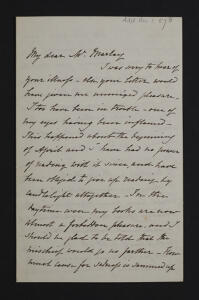 Add. Ms. c. 67/8
My dear Mr. Marlay
I was sorry to hear of
your - else your letter would
have given me unmixed pleasure.
I too have been in trouble - one of
my eyes having been inflamed -
This happened about the beginning
of April and I have had no power
of reading with it since and have
been obliged to give up reading by
candlelight altogether - In the
daytime even my books are now
almost a forbidden pleasure, and I
should be glad to be told that the
mischief would go no farther - How
much cause for sadness is summed up